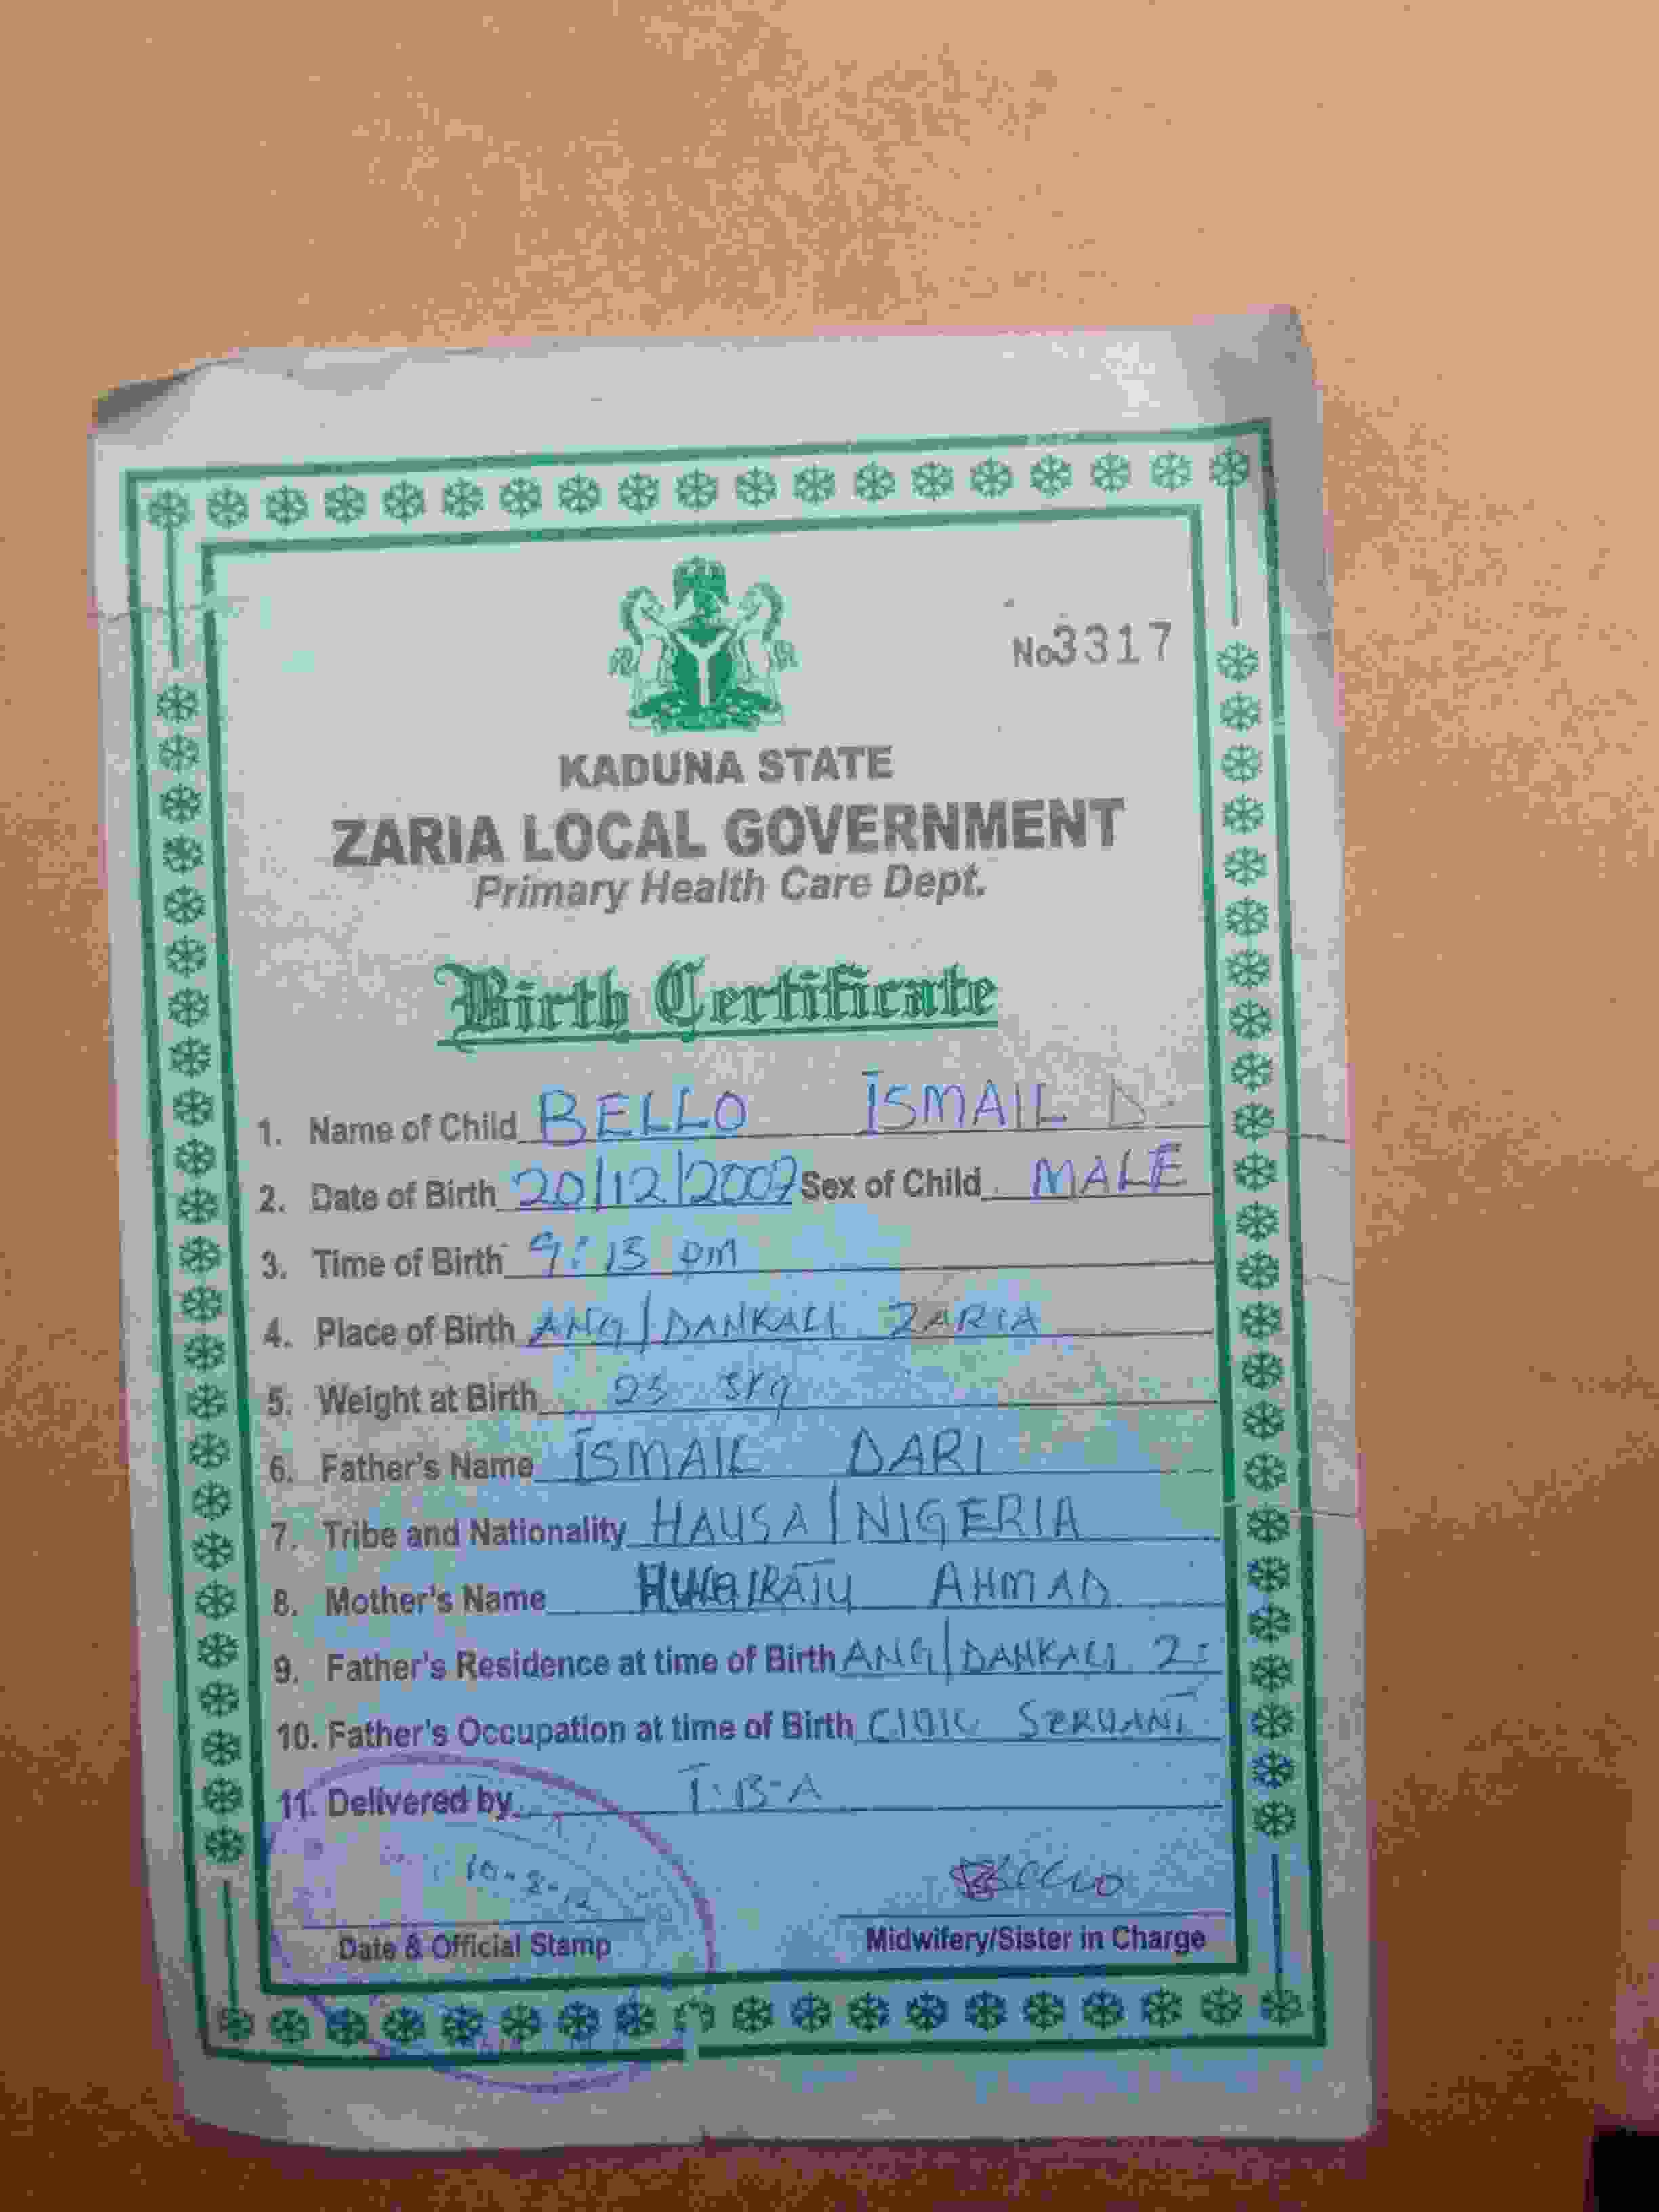 No 3317
KADUNA STATE
ZARIA LOCAL GOVERNMENT
Primary Health Care Dept.
Birth Certificate
1. Name of Child BELLO ISMAIL D.
2. Date of Birth 20/12/2007 Sex of Child MALE
3. Time of Birth 9:15 pm
4. Place of Birth ANG/DANKALI ZARIA
5. Weight at Birth
6. Father's Name ISMAIL DARI
7. Tribe and Nationality HAUSA/NIGERIA
8. Mother's Name AHMAD
9. Father's Residence at time of Birth ANG/DANKALI Z:
10. Father's Occupation at time of Birth CIVIL SERVANT
11. Delivered by T.B.A
Date & Official Stamp
Midwifery/Sister in Charge